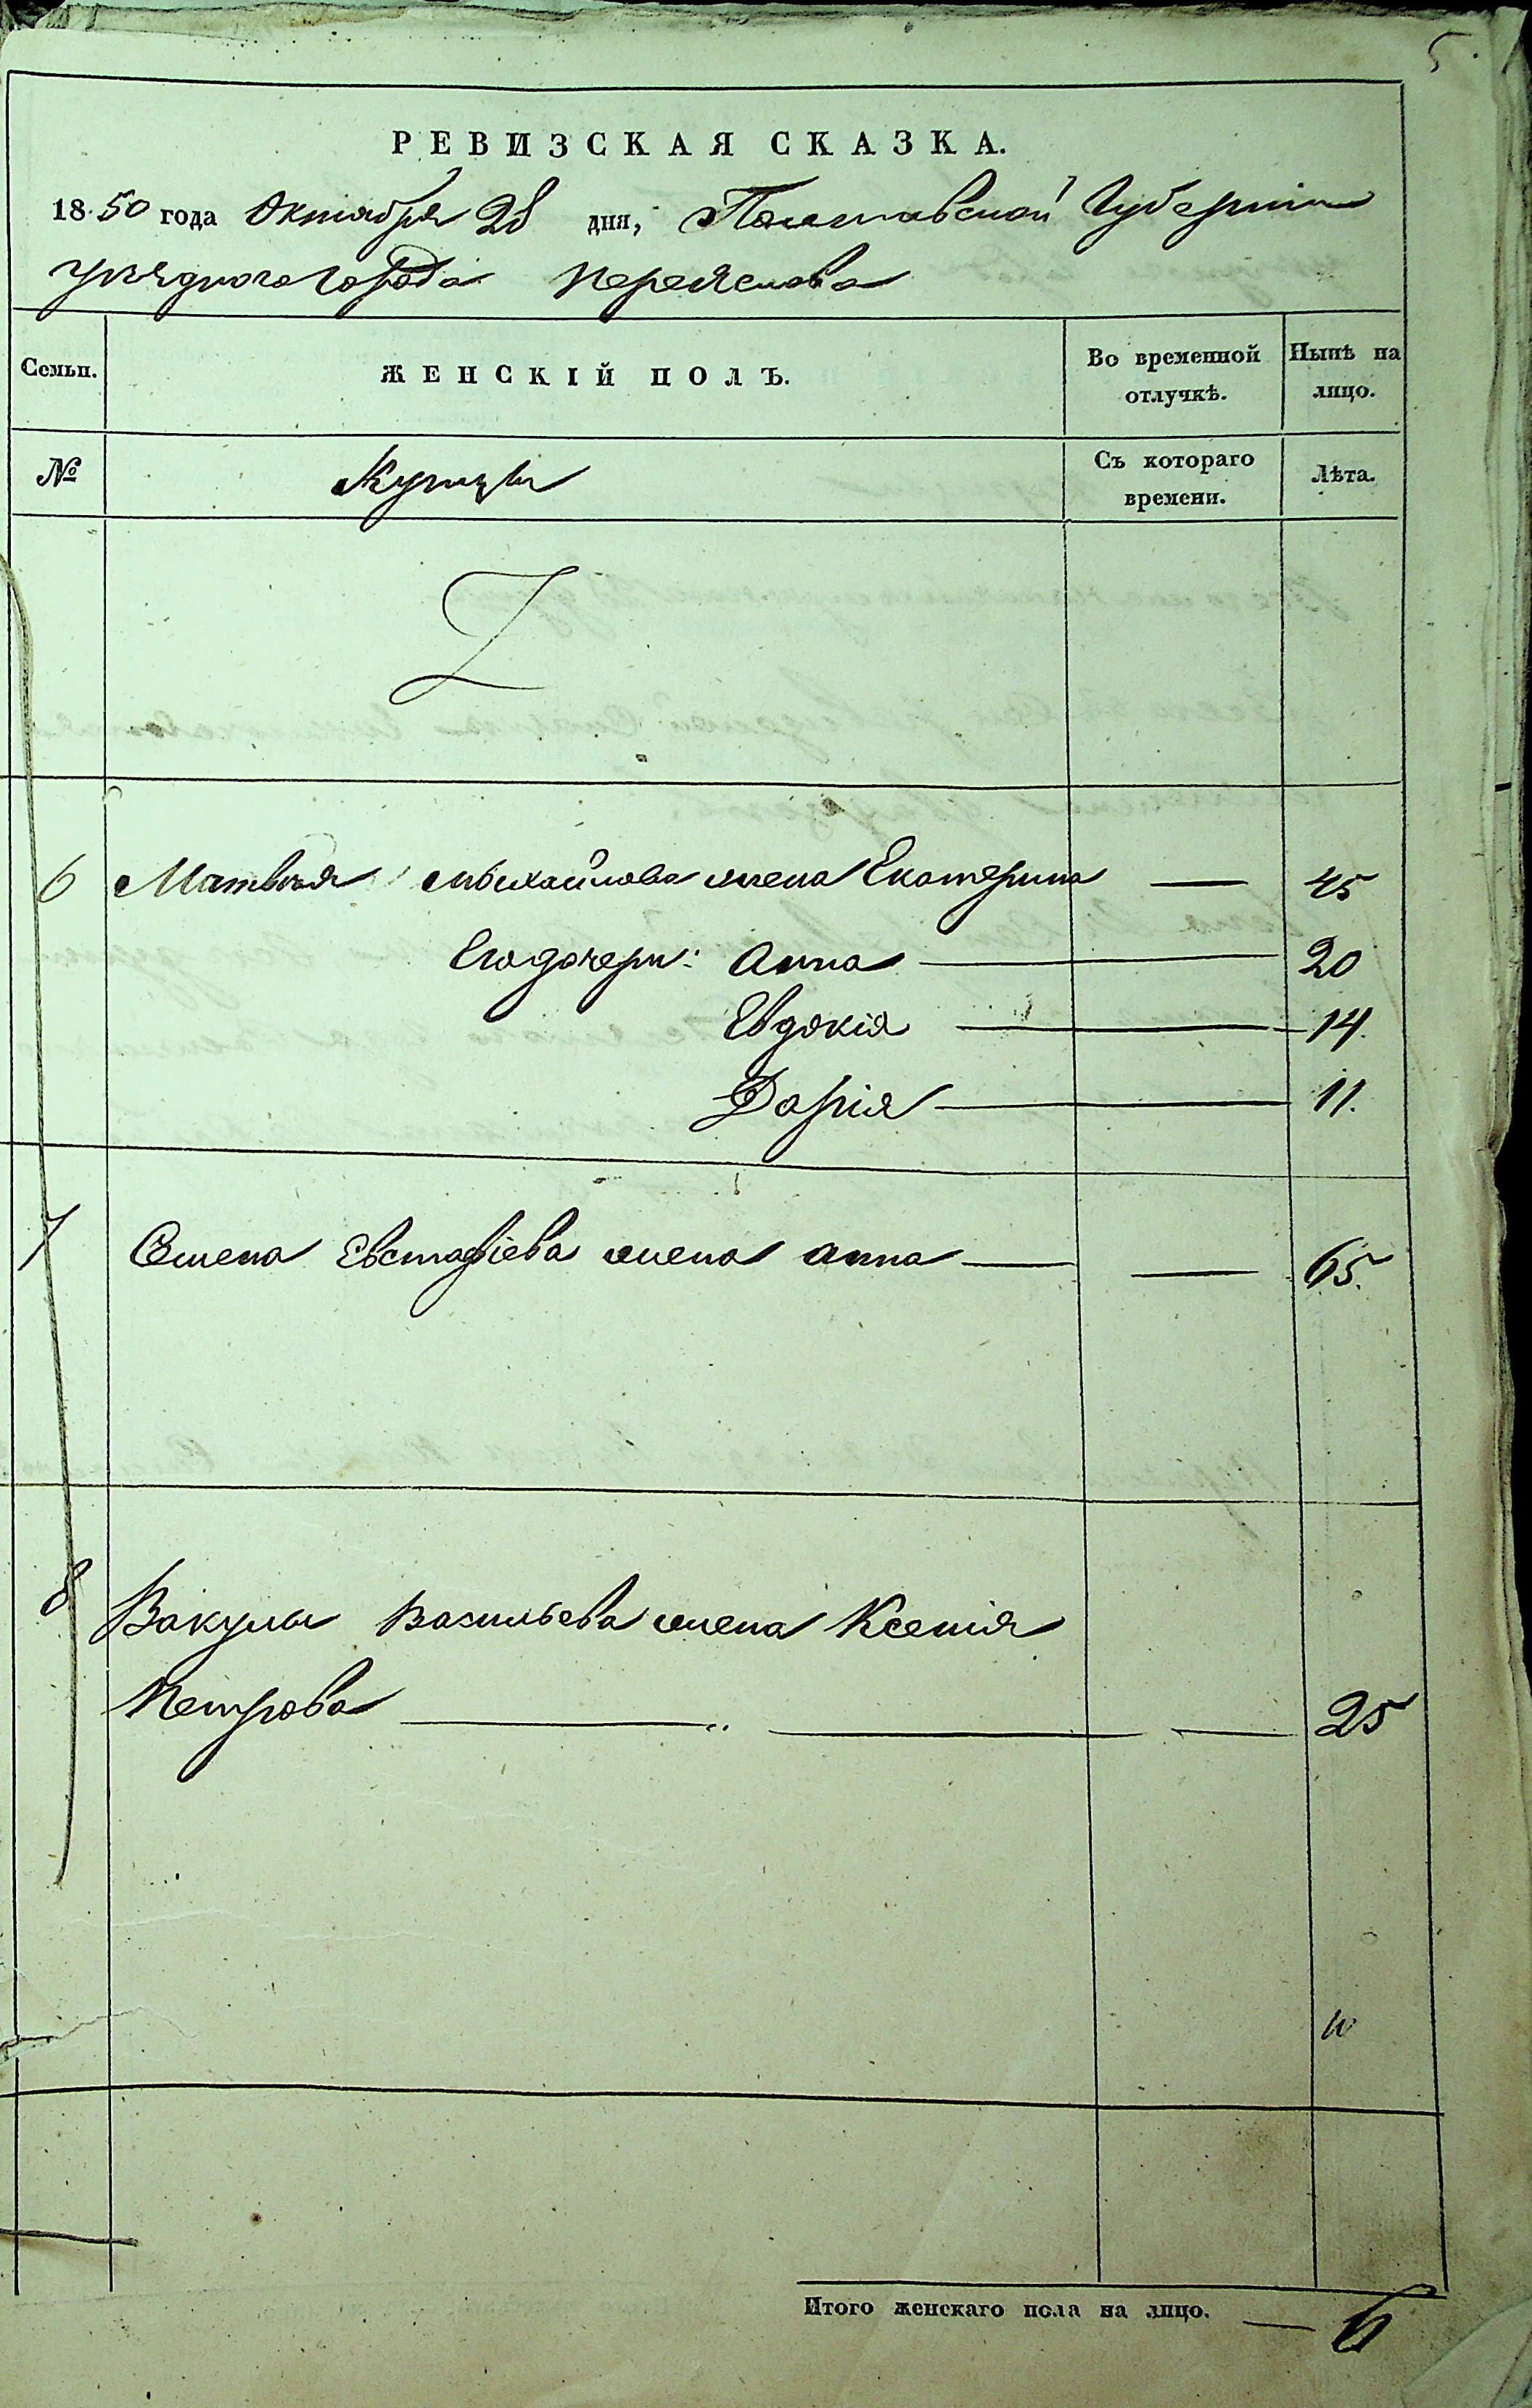 5.
РЕВИЗСКАЯ СКАЗКА.
1850 года Октября 28 дня, Полтавской Губерніи
уѣзднаго города Переяслова
Семьи. ЖЕНСКІЙ ПОЛЪ. Во временной отлучкѣ. Нынѣ на лицо.
№ Купцы Съ котораго времени. Лѣта.
6 Матвѣя Михайлова жена Екатерина — 45
Его дочери: Анна — 20
Евдокія — 14.
Дарія — 11.
7 Семена Евстафіева жена Анна — — 65.
8 Вакулы Васильева жена Ксенія
Петрова — „ — — 25
Итого женскаго пола на лицо. — 6